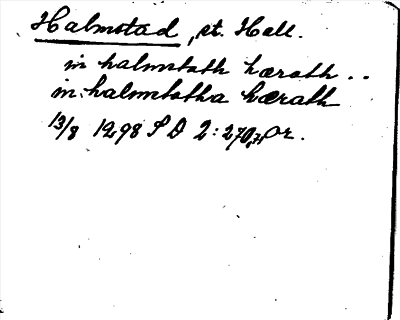 Halmstad, st. Hall.
in halmstath hærath ..
in halmstatha hærath
13/8 1298 S D 2: 270, or.